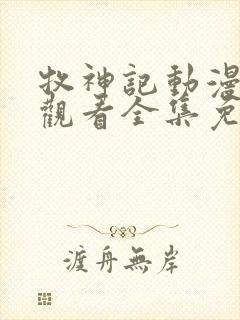 牧神記動漫
觀看全集免
渡舟無岸